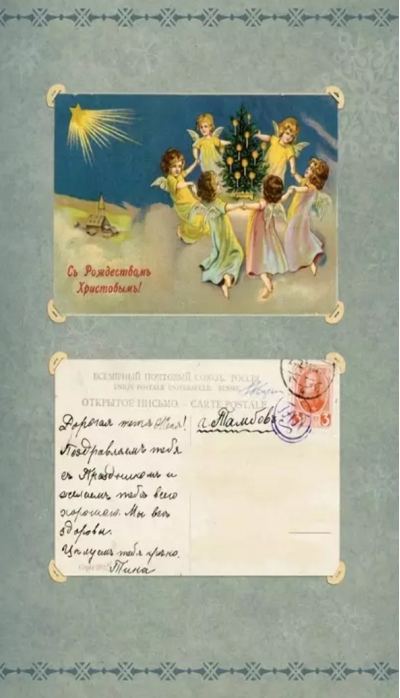 Съ Рождествомъ
Христовымъ!
ВСЕМІРНЫЙ ПОЧТОВЫЙ СОЮЗЪ. РОССІЯ.
UNION POSTALE UNIVERSELLE. RUSSIE.
ОТКРЫТОЕ ПИСЬМО. – CARTE POSTALE.
Дорогая тетя !
Поздравляемъ тебя
съ Праздникомъ и
желаемъ тебѣ всего
хорошаго. Мы всѣ
здоровы.
Цѣлуемъ тебя крѣпко.
Тина
Тамбовъ
3